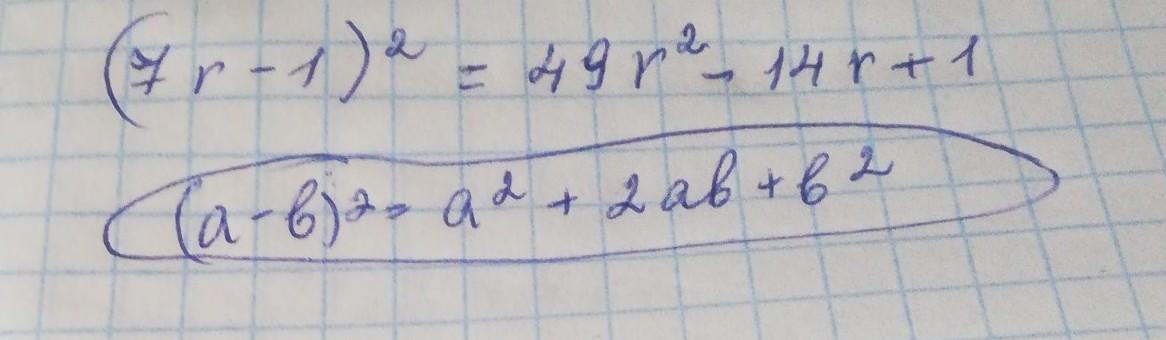 (7r-1)² = 49r² - 14r + 1
(a-b)² = a² + 2ab + b²